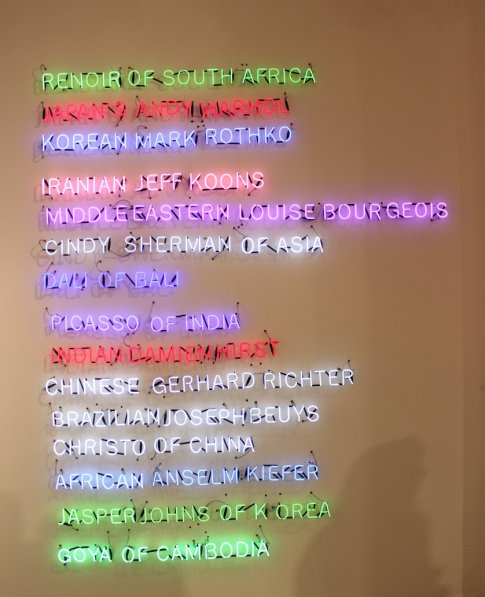 RENOIR OF SOUTH AFRICA
JAPAN'S ANDY WARHOL
KOREAN MARK ROTHKO
IRANIAN JEFF KOONS
MIDDLE EASTERN LOUISE BOURGEOIS
CINDY SHERMAN OF ASIA
DALI OF BALI
PICASSO OF INDIA
INDIAN DAMIEN HIRST
CHINESE GERHARD RICHTER
BRAZILIAN JOSEPH BEUYS
CHRISTO OF CHINA
AFRICAN ANSELM KIEFER
JASPER JOHNS OF KOREA
GOYA OF CAMBODIA